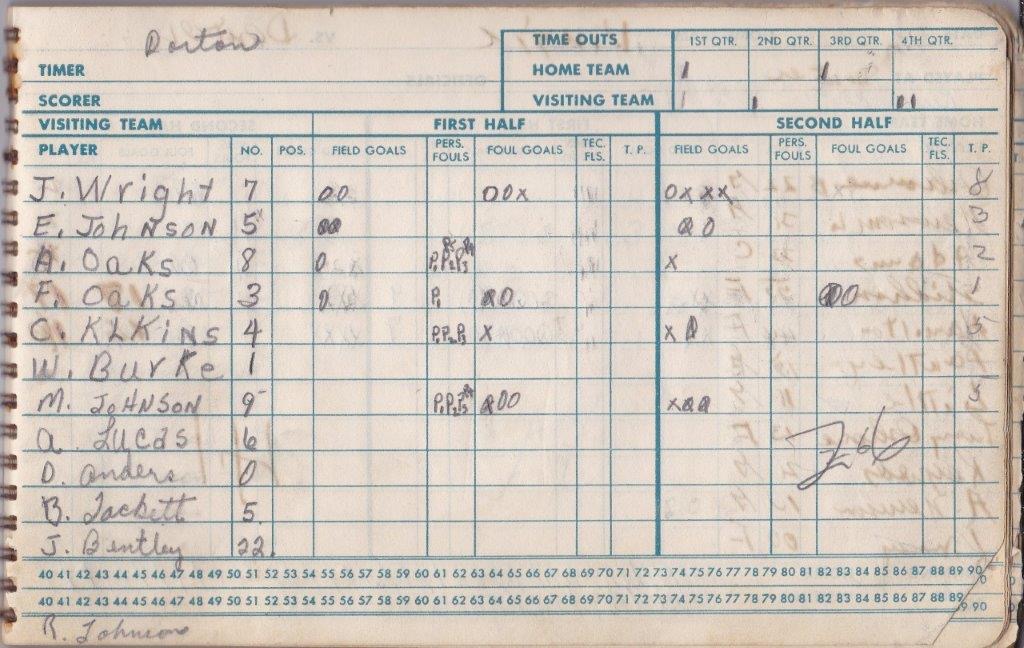 Dorton
TIME OUTS 1ST QTR. 2ND QTR. 3RD QTR. 4TH QTR.
TIMER HOME TEAM 1 1
SCORER VISITING TEAM 1 1 11
VISITING TEAM FIRST HALF SECOND HALF
PLAYER NO. POS. FIELD GOALS PERS. FOULS FOUL GOALS TEC. FLS. T. P. FIELD GOALS PERS. FOULS FOUL GOALS TEC. FLS. T. P.
J. Wright 7 00 00x 0xxx 8
E. Johnson 5 00 00 3
A. Oaks 8 0 P1P2P3 x 2
F. Oaks 3 0 P1 00 00 1
C. KLKins 4 P1P2P3 x x0 5
W. Burke 1
M. Johnson 9 P1P2P3 000 x00 5
a. Lucas 6
D. anders 0
B. Tackett 5
J. Bentley 22
40 41 42 43 44 45 46 47 48 49 50 51 52 53 54 55 56 57 58 59 60 61 62 63 64 65 66 67 68 69 70 71 72 73 74 75 76 77 78 79 80 81 82 83 84 85 86 87 88 89 90
40 41 42 43 44 45 46 47 48 49 50 51 52 53 54 55 56 57 58 59 60 61 62 63 64 65 66 67 68 69 70 71 72 73 74 75 76 77 78 79 80 81 82 83 84 85 86 87 88 89 90
R. Johnson